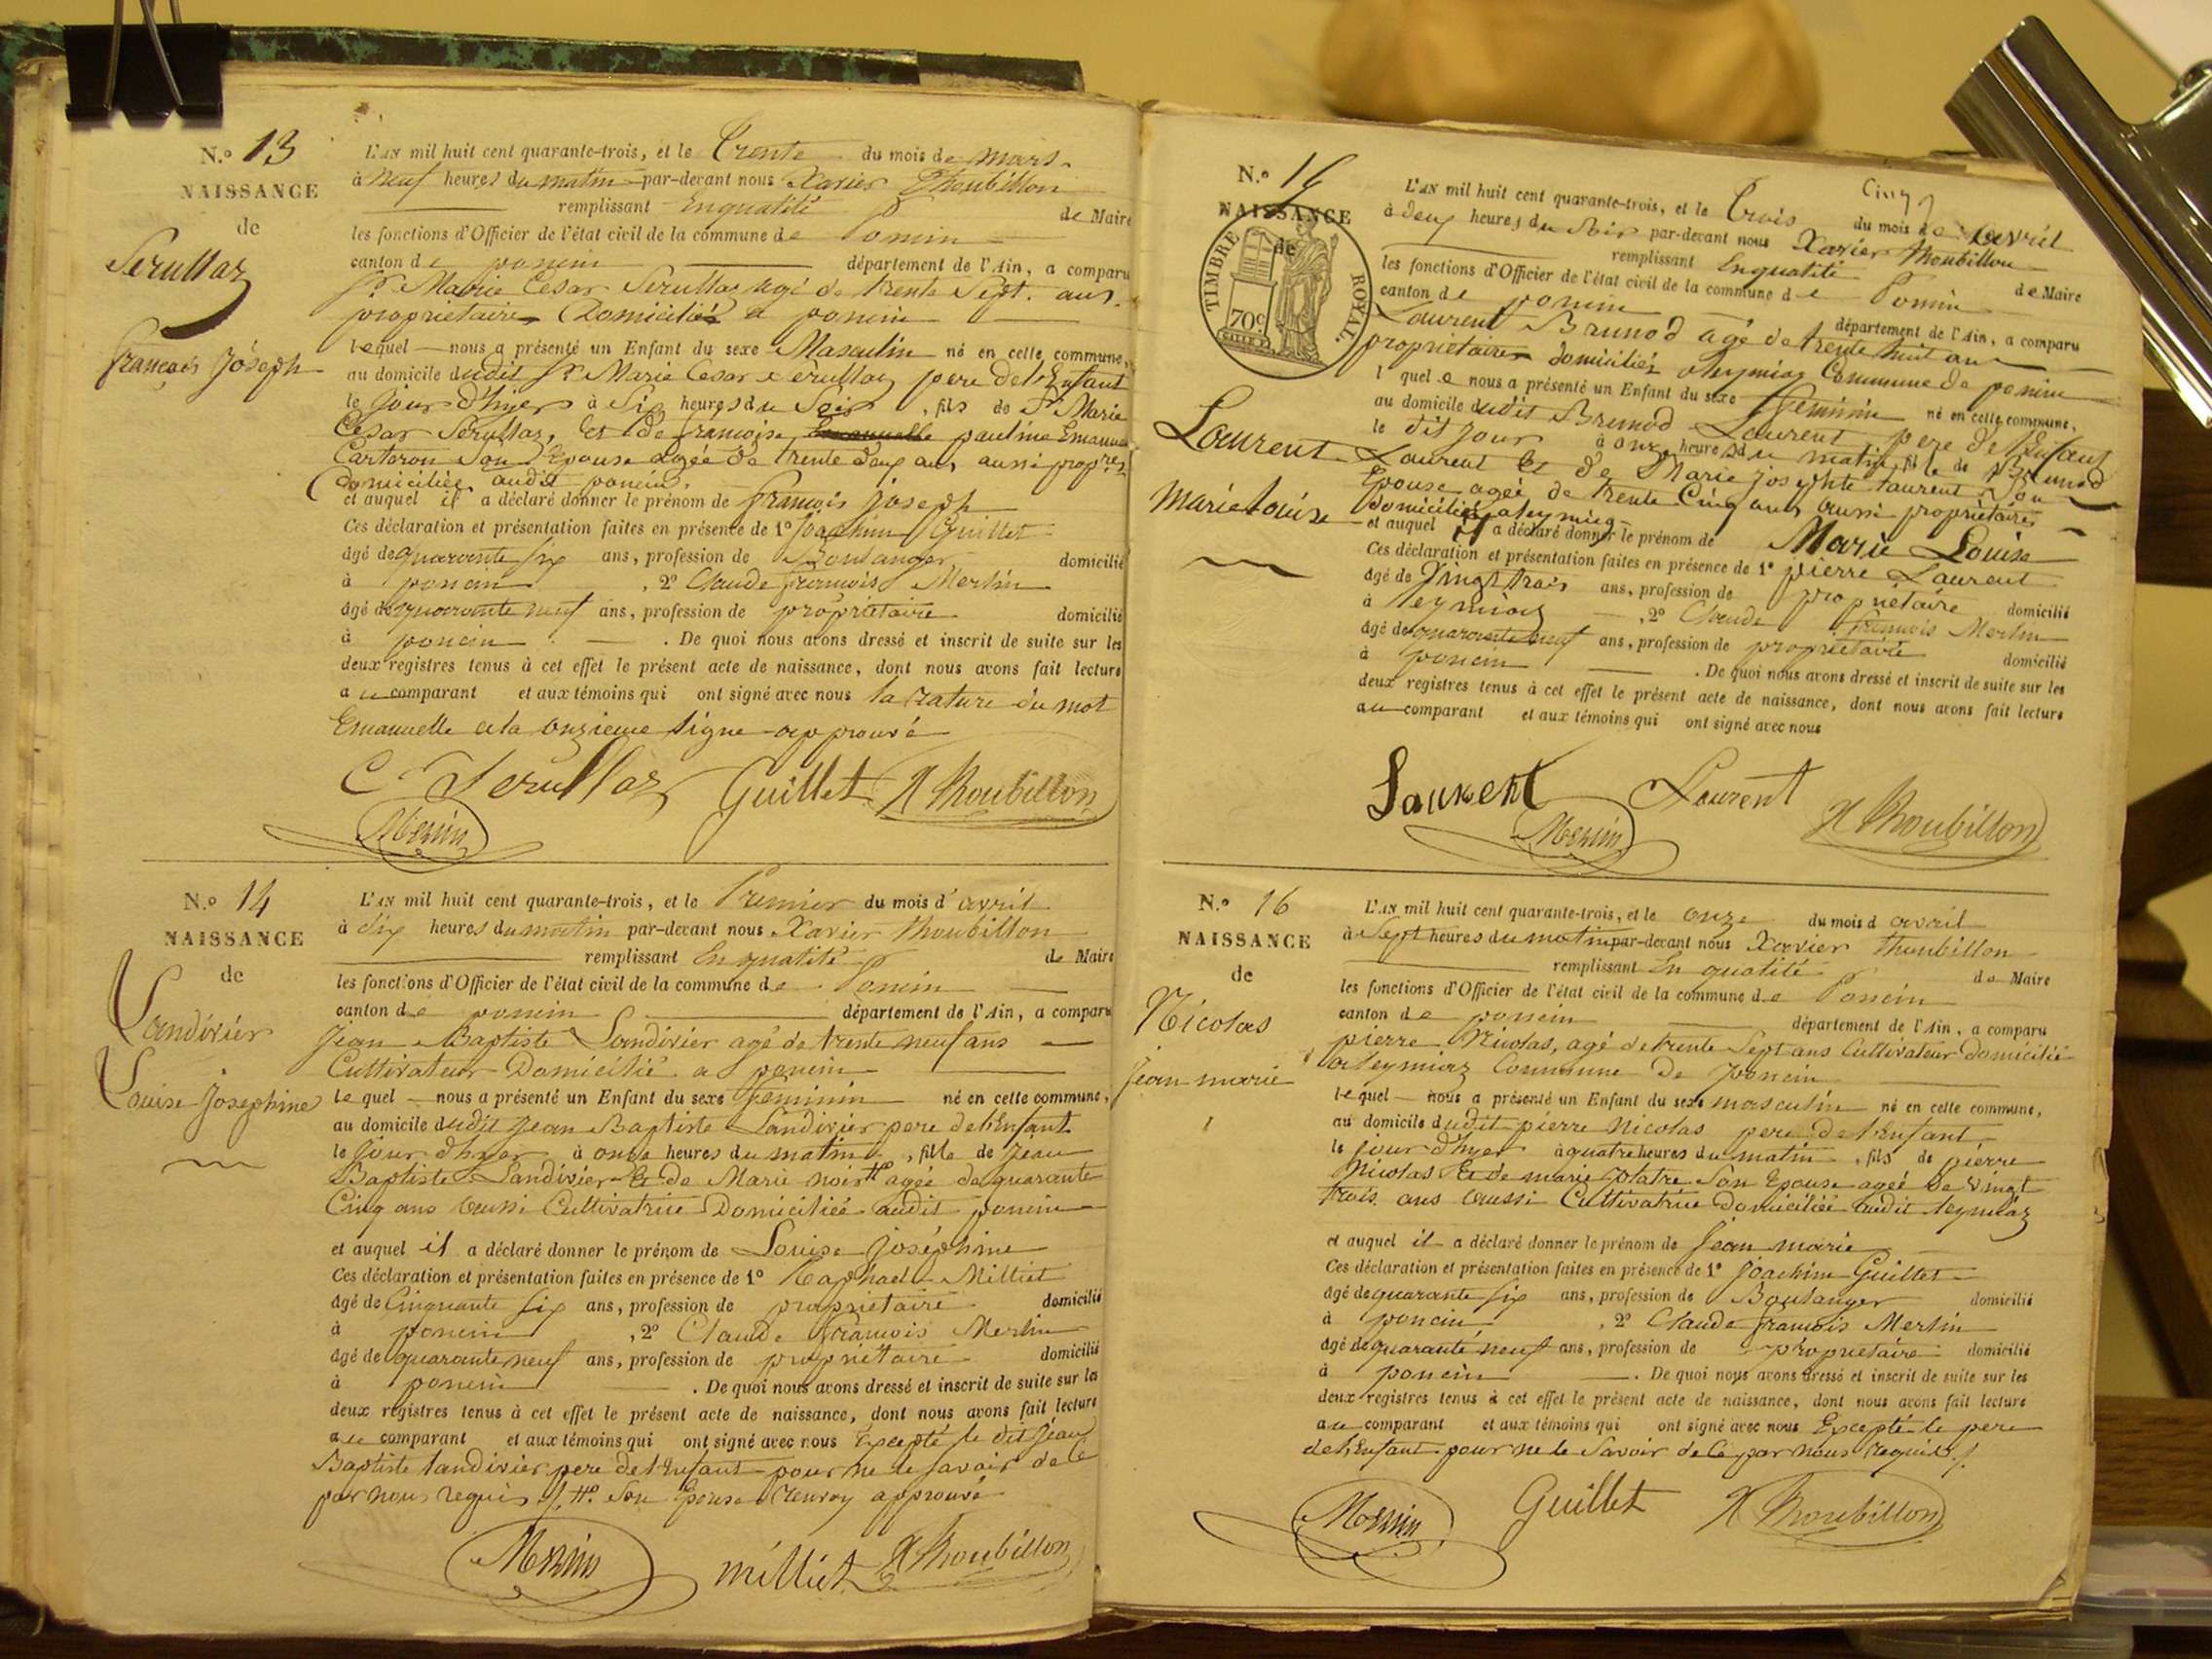 N.° 13
NAISSANCE
de
Serullaz
François Joséph
L'AN mil huit cent quarante-trois, et le Trente du mois de mars
à neuf heures du matin par-devant nous Xavier Thoubillon
remplissant En qualité de Maire
les fonctions d'Officier de l'état civil de la commune de Poncin
canton de poncin département de l'Ain, a comparu
Sr. Marie Cesar Serullaz agé de trente Sept ans
propriétaire Domicilié a poncin
lequel nous a présenté un Enfant du sexe Masculin né en cette commune,
au domicile dudit Sr Marie Cesar Serullaz pere de l'Enfant
le jour d'hyer à Six heures du Soir, fils de Sr Marie
César Sérullaz, Et de françoise Emanuelle pauline Emanuelle
Carteron Son Epouse agée de trente deux ans, aussi prop.res
Domiciliée audit poncin.
et auquel il a déclaré donner le prénom de françois joseph
Ces déclaration et présentation faites en présence de 1° Joachim Guillet
âgé de quarante six ans, profession de Boulanger domicilié
à poncin, 2° Claude françois Merlin
âgé de quarante neuf ans, profession de propriétaire domicilié
à poncin. De quoi nous avons dressé et inscrit de suite sur les
deux registres tenus à cet effet le présent acte de naissance, dont nous avons fait lecture
au comparant et aux témoins qui ont signé avec nous la rature du mot
Emanuelle a la onzieme ligne approuvé
C Serullaz Guillet X Thoubillon
Merlin
N.° 14
NAISSANCE
de
Landivier
Louise Josephine
L'AN mil huit cent quarante-trois, et le Premier du mois d'avril
à dix heures du matin par-devant nous Xavier thoubillon
remplissant En qualité de Maire
les fonctions d'Officier de l'état civil de la commune de Poncin
canton de poncin département de l'Ain, a comparu
Jean Baptiste Landivier agé de trente neuf ans
Cultivateur Domicilié a poncin
lequel nous a présenté un Enfant du sexe féminin né en cette commune,
au domicile dudit Jean Baptiste Landivier pere de l'Enfant
le jour d'hyer à onze heures du matin, fille de Jean
Baptiste Landivier Et de Marie noir # agée de quarante
Cinq ans aussi Cultivatrice Domiciliée audit poncin
et auquel il a déclaré donner le prénom de Louise Joséphine
Ces déclaration et présentation faites en présence de 1° Raphael Milliet
âgé de Cinquante Six ans, profession de propriétaire domicilié
à poncin, 2° Claude françois Merlin
âgé de quarante neuf ans, profession de propriétaire domicilié
à poncin. De quoi nous avons dressé et inscrit de suite sur les
deux registres tenus à cet effet le présent acte de naissance, dont nous avons fait lecture
au comparant et aux témoins qui ont signé avec nous Excepté le dit Jean
Baptiste landivier pere de l'Enfant pour ne le savoir de ce
par nous requis ./. #. Son Epouse renvoy approuvé
Merlin Milliet X Thoubillon
N.° 15
NAISSANCE
de
TIMBRE ROYAL
70c
Laurent
Marie Louise
Cinq
L'AN mil huit cent quarante-trois, et le Trois du mois de avril
à deux heures du Soir par-devant nous Xavier thoubillon
remplissant En qualité de Maire
les fonctions d'Officier de l'état civil de la commune de Poncin
canton de poncin département de l'Ain, a comparu
Laurent Brunod agé de trente huit ans
propriétaire domicilié a leymiaz Commune de poncin
lequel nous a présenté un Enfant du sexe féminin né en cette commune,
au domicile dudit Brunod Laurent pere de l'Enfant
le dit jour à onze heures du matin, fille de Brunod
Laurent Et de Marie josephte laurent Son
Epouse agée de trente Cinq ans aussi propriétaire
domiciliée a leymiaz
et auquel il a déclaré donner le prénom de Marie Louise
Ces déclaration et présentation faites en présence de 1° pierre Laurent
âgé de Vingt trois ans, profession de propriétaire domicilié
à leymiaz, 2° Claude françois Merlin
âgé de quarante neuf ans, profession de propriétaire domicilié
à poncin. De quoi nous avons dressé et inscrit de suite sur les
deux registres tenus à cet effet le présent acte de naissance, dont nous avons fait lecture
au comparant et aux témoins qui ont signé avec nous
Laurent Laurent X Thoubillon
Merlin
N.° 16
NAISSANCE
de
Nicolas
Jean marie
L'AN mil huit cent quarante-trois, et le onze du mois d avril
à Sept heures du matin par-devant nous Xavier thoubillon
remplissant En qualité de Maire
les fonctions d'Officier de l'état civil de la commune de Poncin
canton de poncin département de l'Ain, a comparu
pierre Nicolas, agé de trente Sept ans Cultivateur domicilié
a leymiaz Commune de poncin
lequel nous a présenté un Enfant du sexe masculin né en cette commune,
au domicile dudit pierre nicolas pere de l'Enfant
le jour d'hyer à quatre heures du matin, fils de pierre
Nicolas Et de marie platre Son Epouse agée de Vingt
trois ans aussi Cultivatrice domiciliée audit leymiaz
et auquel il a déclaré donner le prénom de Jean marie
Ces déclaration et présentation faites en présence de 1° Joachim Guillet
âgé de quarante six ans, profession de Boulanger domicilié
à poncin, 2° Claude françois Merlin
âgé de quarante neuf ans, profession de propriétaire domicilié
à poncin. De quoi nous avons dressé et inscrit de suite sur les
deux registres tenus à cet effet le présent acte de naissance, dont nous avons fait lecture
au comparant et aux témoins qui ont signé avec nous Excepté le pere
de l'Enfant pour ne le Savoir de ce par nous requis ./.
Merlin Guillet X Thoubillon